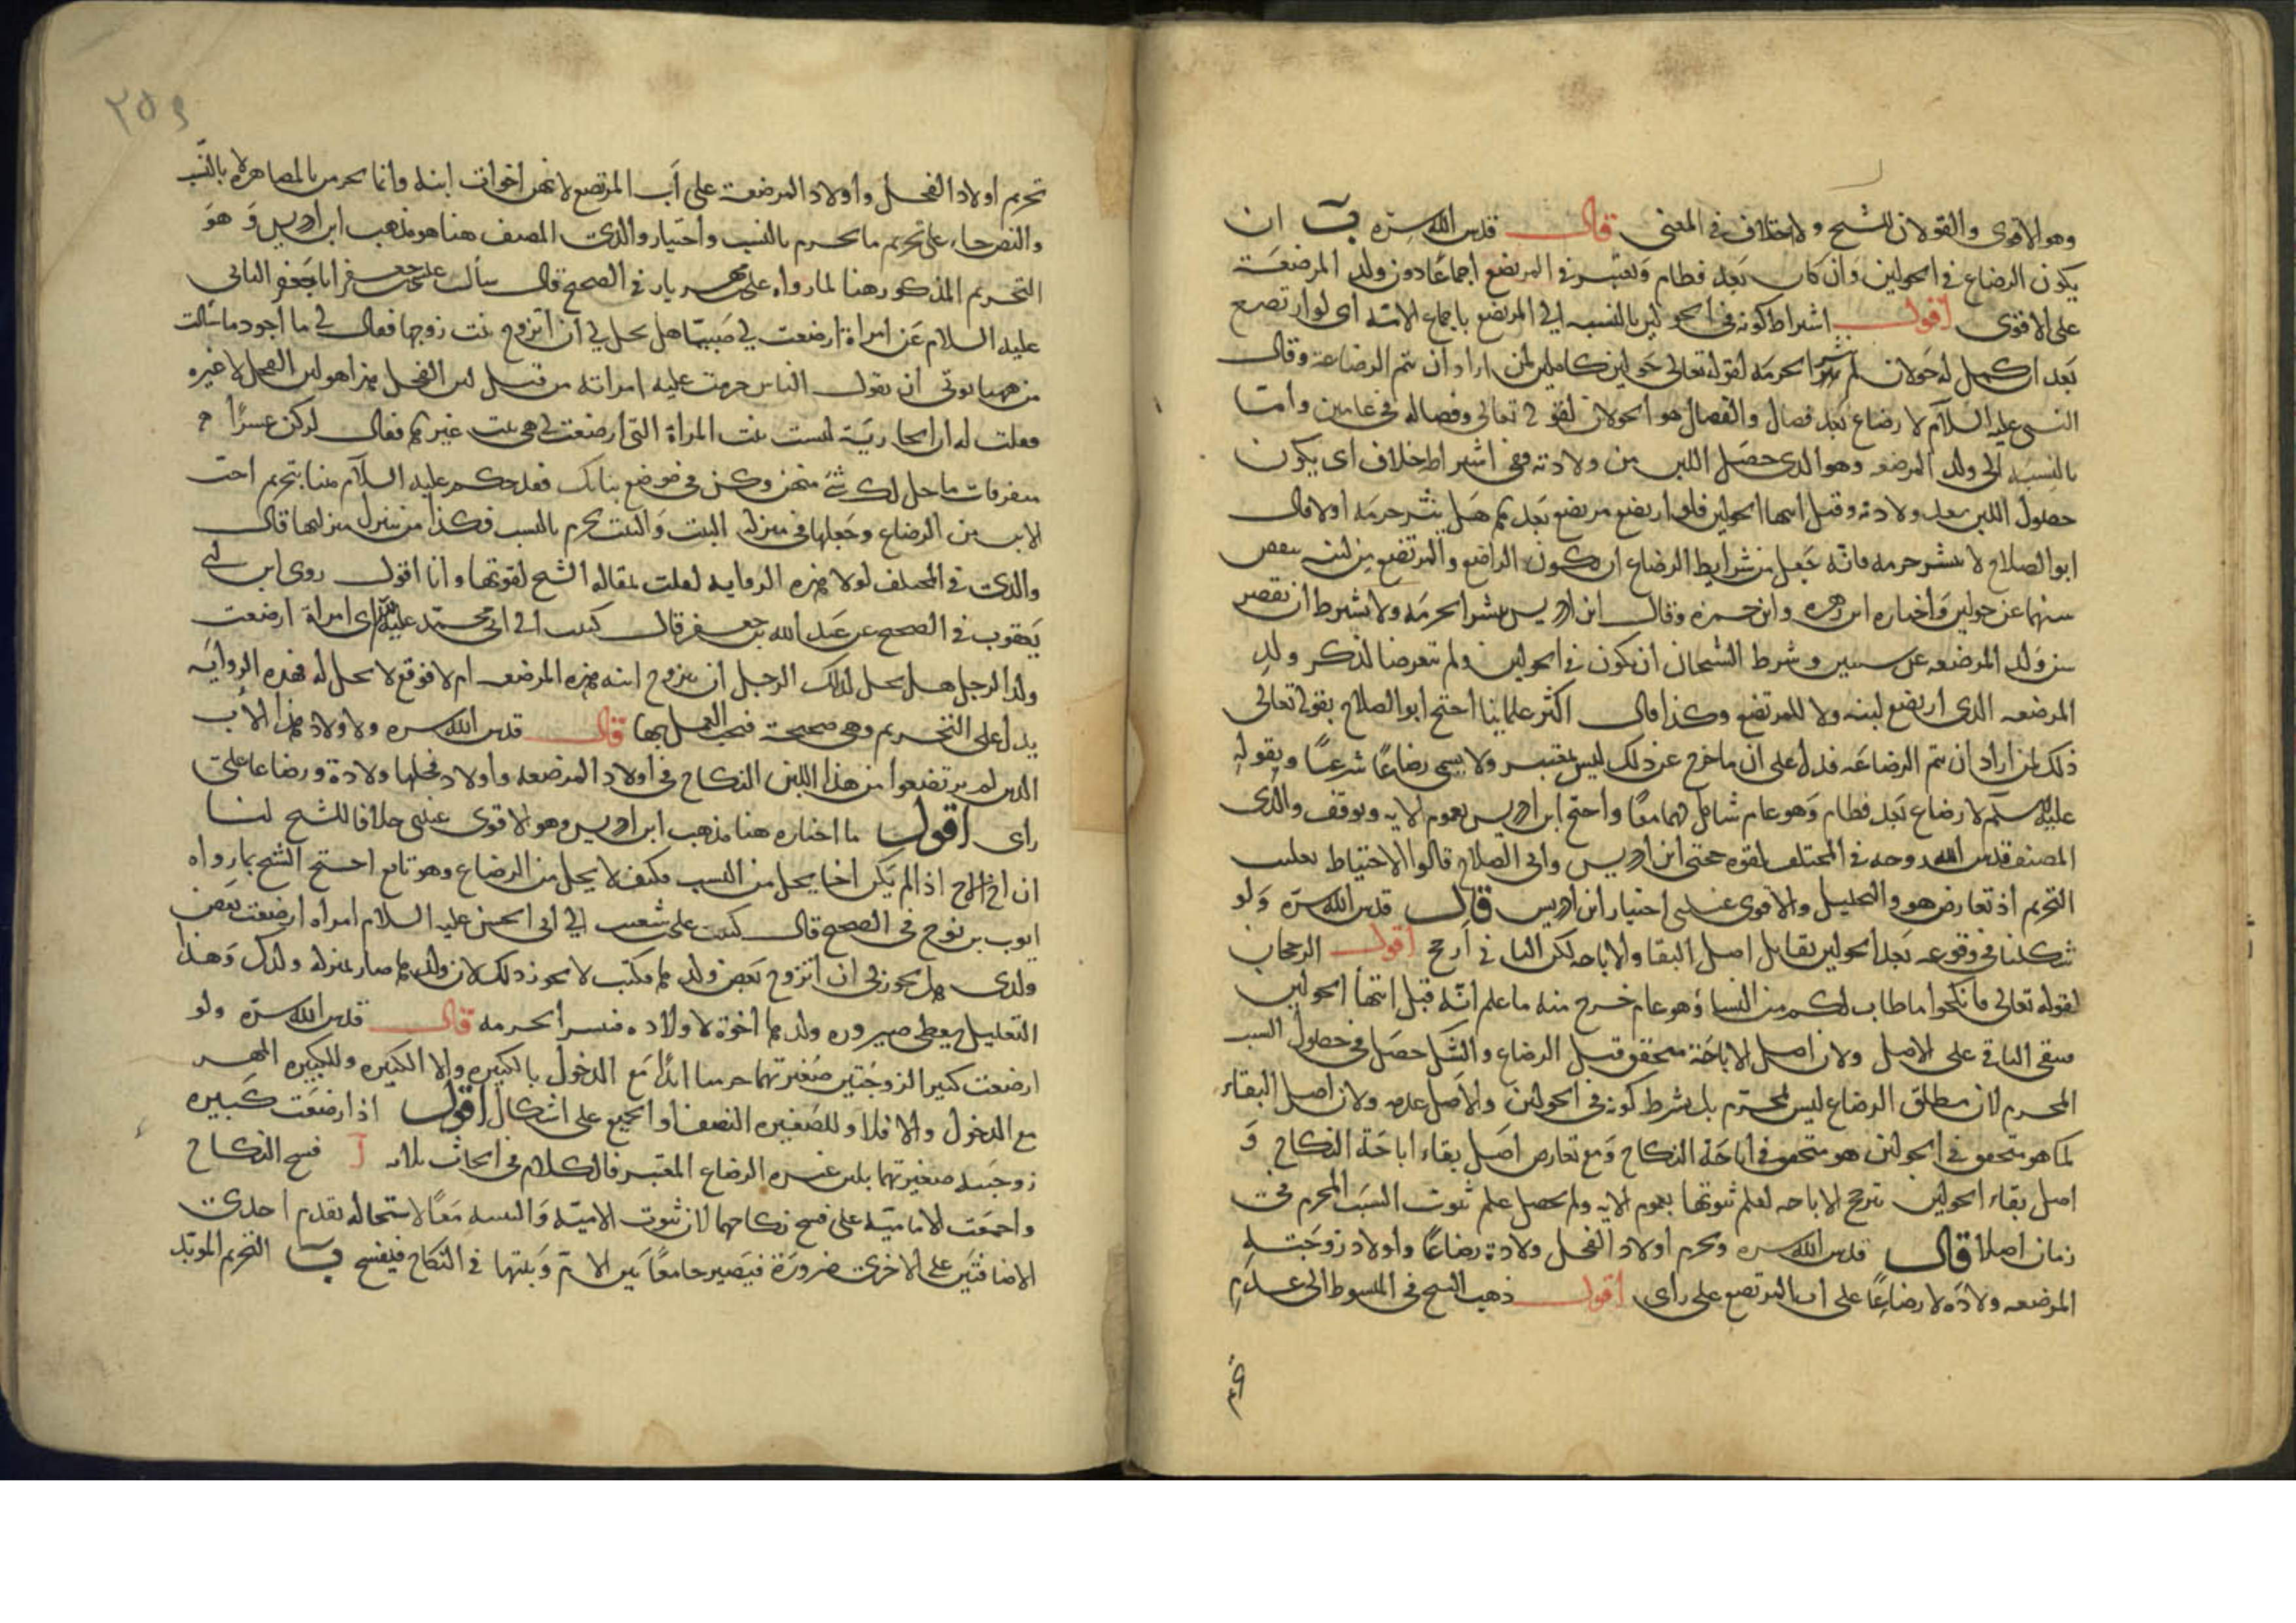 وهو الاقوى والقولان للشيخ ولا خلاف في المعنى قال قدس الله سره ب ان
يكون الرضاع في الحولين وان كان بعد فطام ويعتبر في المرتضع اجماعا دون ولد المرضعة
على الاقوى اقول اشتراط كونه في الحولين بالنسبه الى المرتضع باجماع الامة اى لو ارتضع
بعد ان كمل له حولان لم ينشر الحرمة لقوله تعالى حولين كاملين لمن اراد ان يتم الرضاعة وقال
النبي عليه السلام لا رضاع بعد فصال والفصال هو الحولان لقوله تعالى وفصاله في عامين واما
بالنسبة الى ولد المرضعه وهو الذى حصل اللبن من ولادته ففي اشتراطه خلاف اى يكون
حصول اللبن بعد ولادته وقبل انتهاء الحولين فلو ارتضع مرتضع بعدهما هل ينشر حرمة اولا قال
ابو الصلاح لا ينشر حرمه فانه جعل من شرايط الرضاع ان يكون الراضع والمرتضع من لبنه ينقص
سنهما عن حولين واختاره ابن زهره وابن حمزة وقال ابن ادريس ينشر الحرمة ولا يشترط ان تقصر
سن ولد المرضعه عن سنتين وشرط الشيخان ان يكون في الحولين ولم يتعرضا لذكر ولد
المرضعه الذى ارتضع لبنه ولا للمرتضع وكذا قال اكثر علمائنا احتج ابو الصلاح بقوله تعالى
ذلك لمن اراد ان يتم الرضاعة فدل على ان ما خرج عن ذلك ليس بمعتبر ولا يسمى رضاعا شرعا وبقوله
عليه السلم لا رضاع بعد فطام وهو عام شامل لهما معا واحتج ابن ادريس بعموم الايه وتوقف والدى
المصنف قدس الله روحه في المختلف لقوة حجتى ابن ادريس وابى الصلاح قالوا الاحتياط يغلب
التحريم اذ تعارض هو والتحليل والاقوى عندى اختيار ابن ادريس قال قدس الله سره ولو
شككنا في وقوعه بعد الحولين تقابل اصل البقا والاباحه لكن الثانى ارجح اقول الرجحان
لقوله تعالى فانكحوا ما طاب لكم من النسا وهو عام خرج منه ما علم انه قبل انتها الحولين
فيبقى الباقى على الاصل ولان اصل الاباحة متحقق قبل الرضاع والشك حصل في حصول السبب
المحرم لان مطلق الرضاع ليس بمحرم بل بشرط كونه في الحولين والاصل عدمه ولان اصل البقاء
كما هو متحقق في الحولين هو متحقق في اباحة النكاح ومع تعارض اصل بقاء اباحة النكاح و
اصل بقاء الحولين يترجح الاباحه لعلم ثبوتها بعموم الايه ولم يحصل علم ثبوت السبب المحرم في
زمان اصلا قال قدس الله سره ويحرم اولاد الفحل ولادة رضاعا واولاد زوجته
المرضعه ولادة لا رضاعا على اب المرتضع على راى اقول ذهب الشيخ في المبسوط الى عدم
تحريم اولاد الفحل واولاد المرضعة على اب المرتضع لانهن اخوات ابنه وانما يحرمن بالمصاهرة لا بالنسب
والنص جاء على تحريم ما يحرم بالنسب واختيار والدى المصنف هنا هو مذهب ابن ادريس وهو
التحريم المذكور هنا لما رواه على بن مهزيار في الصحيح قال سأل على بن جعفر ابا جعفر الثانى
عليه السلام عن امراة ارضعت لي صبيا هل يحل لي ان اتزوج بنت زوجها فقال لي ما اجود ما سألت
من ههنا يوتى ان يقول الناس حرمت عليه امراته من قبل لبن الفحل هذا هو لبن الفحل لا غيره
فقلت له ان الجارية ليست بنت المراة التى ارضعت لي هي بنت غيرها فقال لو كن عشرا
متفرقات ما حل لك شئ منهن وكن في موضع بناتك فقد حكم عليه السلام هنا بتحريم اخت
الابن من الرضاع وجعلها في منزلة البنت والبنت تحرم بالنسب فكذا من ينزل منزلتها قال
والدى في المختلف لولا هذه الروايه لقلت بمقالة الشيخ لقوتها وانا اقول روى ابن
يعقوب في الصحيح عن عبد الله بن جعفر قال كتبت الى ابى محمد عليه السلام امراة ارضعت
ولد الرجل هل يحل لذلك الرجل ان يتزوج ابنه هذه المرضعه ام لا فوقع لا يحل له فهذه الرواية
يدل على التحريم وهي صحيحة فيجب العمل بها قال قدس الله سره ولاولاد هذا الاب
الذين لم يرتضعوا من هذا اللبن النكاح في اولاد المرضعه واولاد فحلها ولادة ورضاعا على
راى اقول ما اختاره هنا مذهب ابن ادريس وهو الاقوى عندى خلافا للشيخ لنا
ان اخ الاخ اذا لم يكن اخا يحل من النسب فكيف لا يحل من الرضاع وهو تابع احتج الشيخ بما رواه
ايوب بن نوح في الصحيح قال كتب على بن شعيب الى ابى الحسن عليه السلام امراه ارضعت بعض
ولدى هل يجوز لى ان اتزوج بعض ولدها فكتب لا يجوز ذلك لان ولدها صار بمنزله ولدك وهذا
التعليل يعطى صيرورة ولدها اخوة لاولاده فنشر الحرمه قال قدس الله سره ولو
ارضعت كبير الزوجتين صغيرتهما حرمتا ابدا مع الدخول بالكبيره والا الكبيره وللكبيره المهر
مع الدخول والا فلا وللصغيره النصف او الجميع على اشكال اقول اذا ارضعت كبيره
زوجتيه صغيرتهما بلبن غيره الرضاع المعتبر فالكلام في ابحاث ثلاثه ا فسخ النكاح
واجمعت الامامية على فسخ نكاحهما لان ثبوت الامية والبنتيه معا لاستحالة تقدم احدى
الاضافتين على الاخرى ضرورة فيصير جامعا بين الام وبنتها في النكاح فيفسخ ب التحريم المؤبد